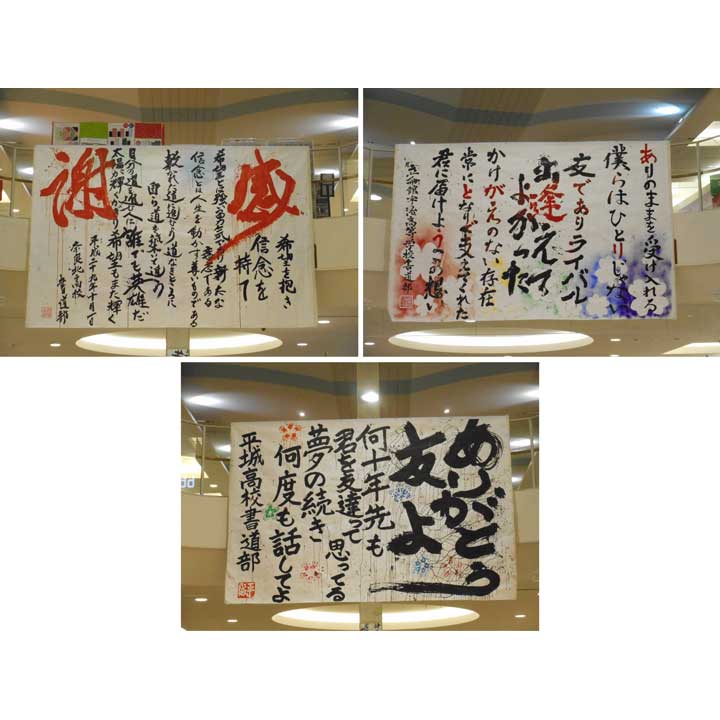 感謝
希望を抱き
信念を
持て
信念とは人生を動かす尊いものである
敷かれた道進むより道なきところに
自ら道を築いて進め
太陽が輝くかぎり希望もまた輝く
奈良北高校
書道部
ありのままを受け入れる
僕らはひとりじゃない
友でありライバル
出逢えて
よかった
かけがえのない存在
常にとなりで支えてくれた
君に届けようこの想い
立命館宇治高等学校書道部
ありがとう
友よ
何十年先も
君を友達って
思ってる
夢の続き
何度も話してよ
平城高校書道部